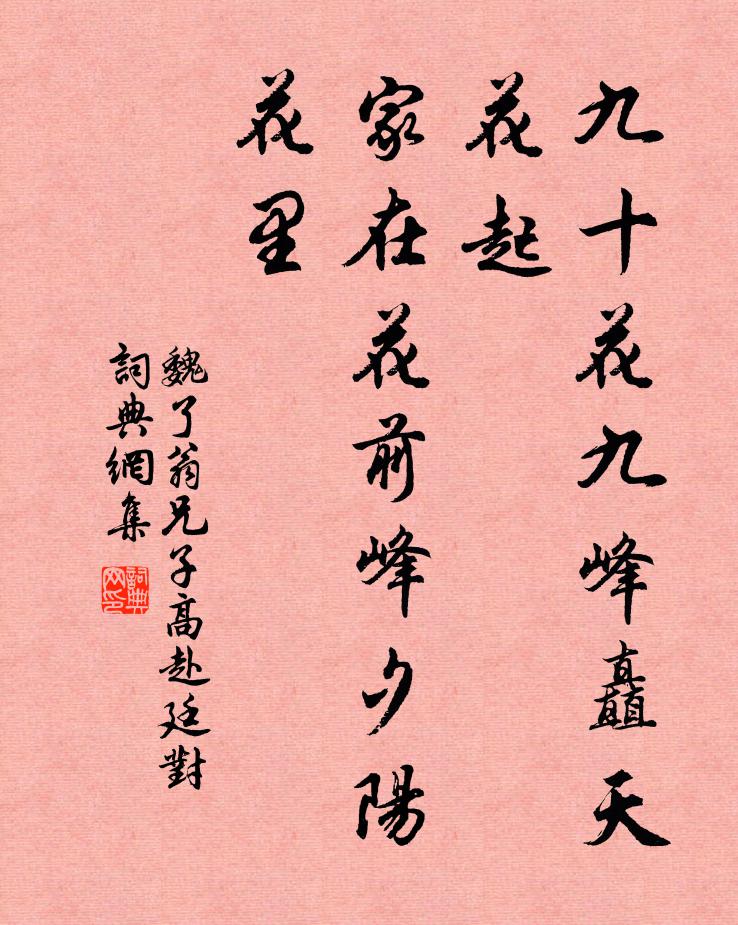 九十花九峰矗天
花起
家在花前峰夕陽
花里
魏了翁兄子高赴廷對
詞典網集
詞典網印